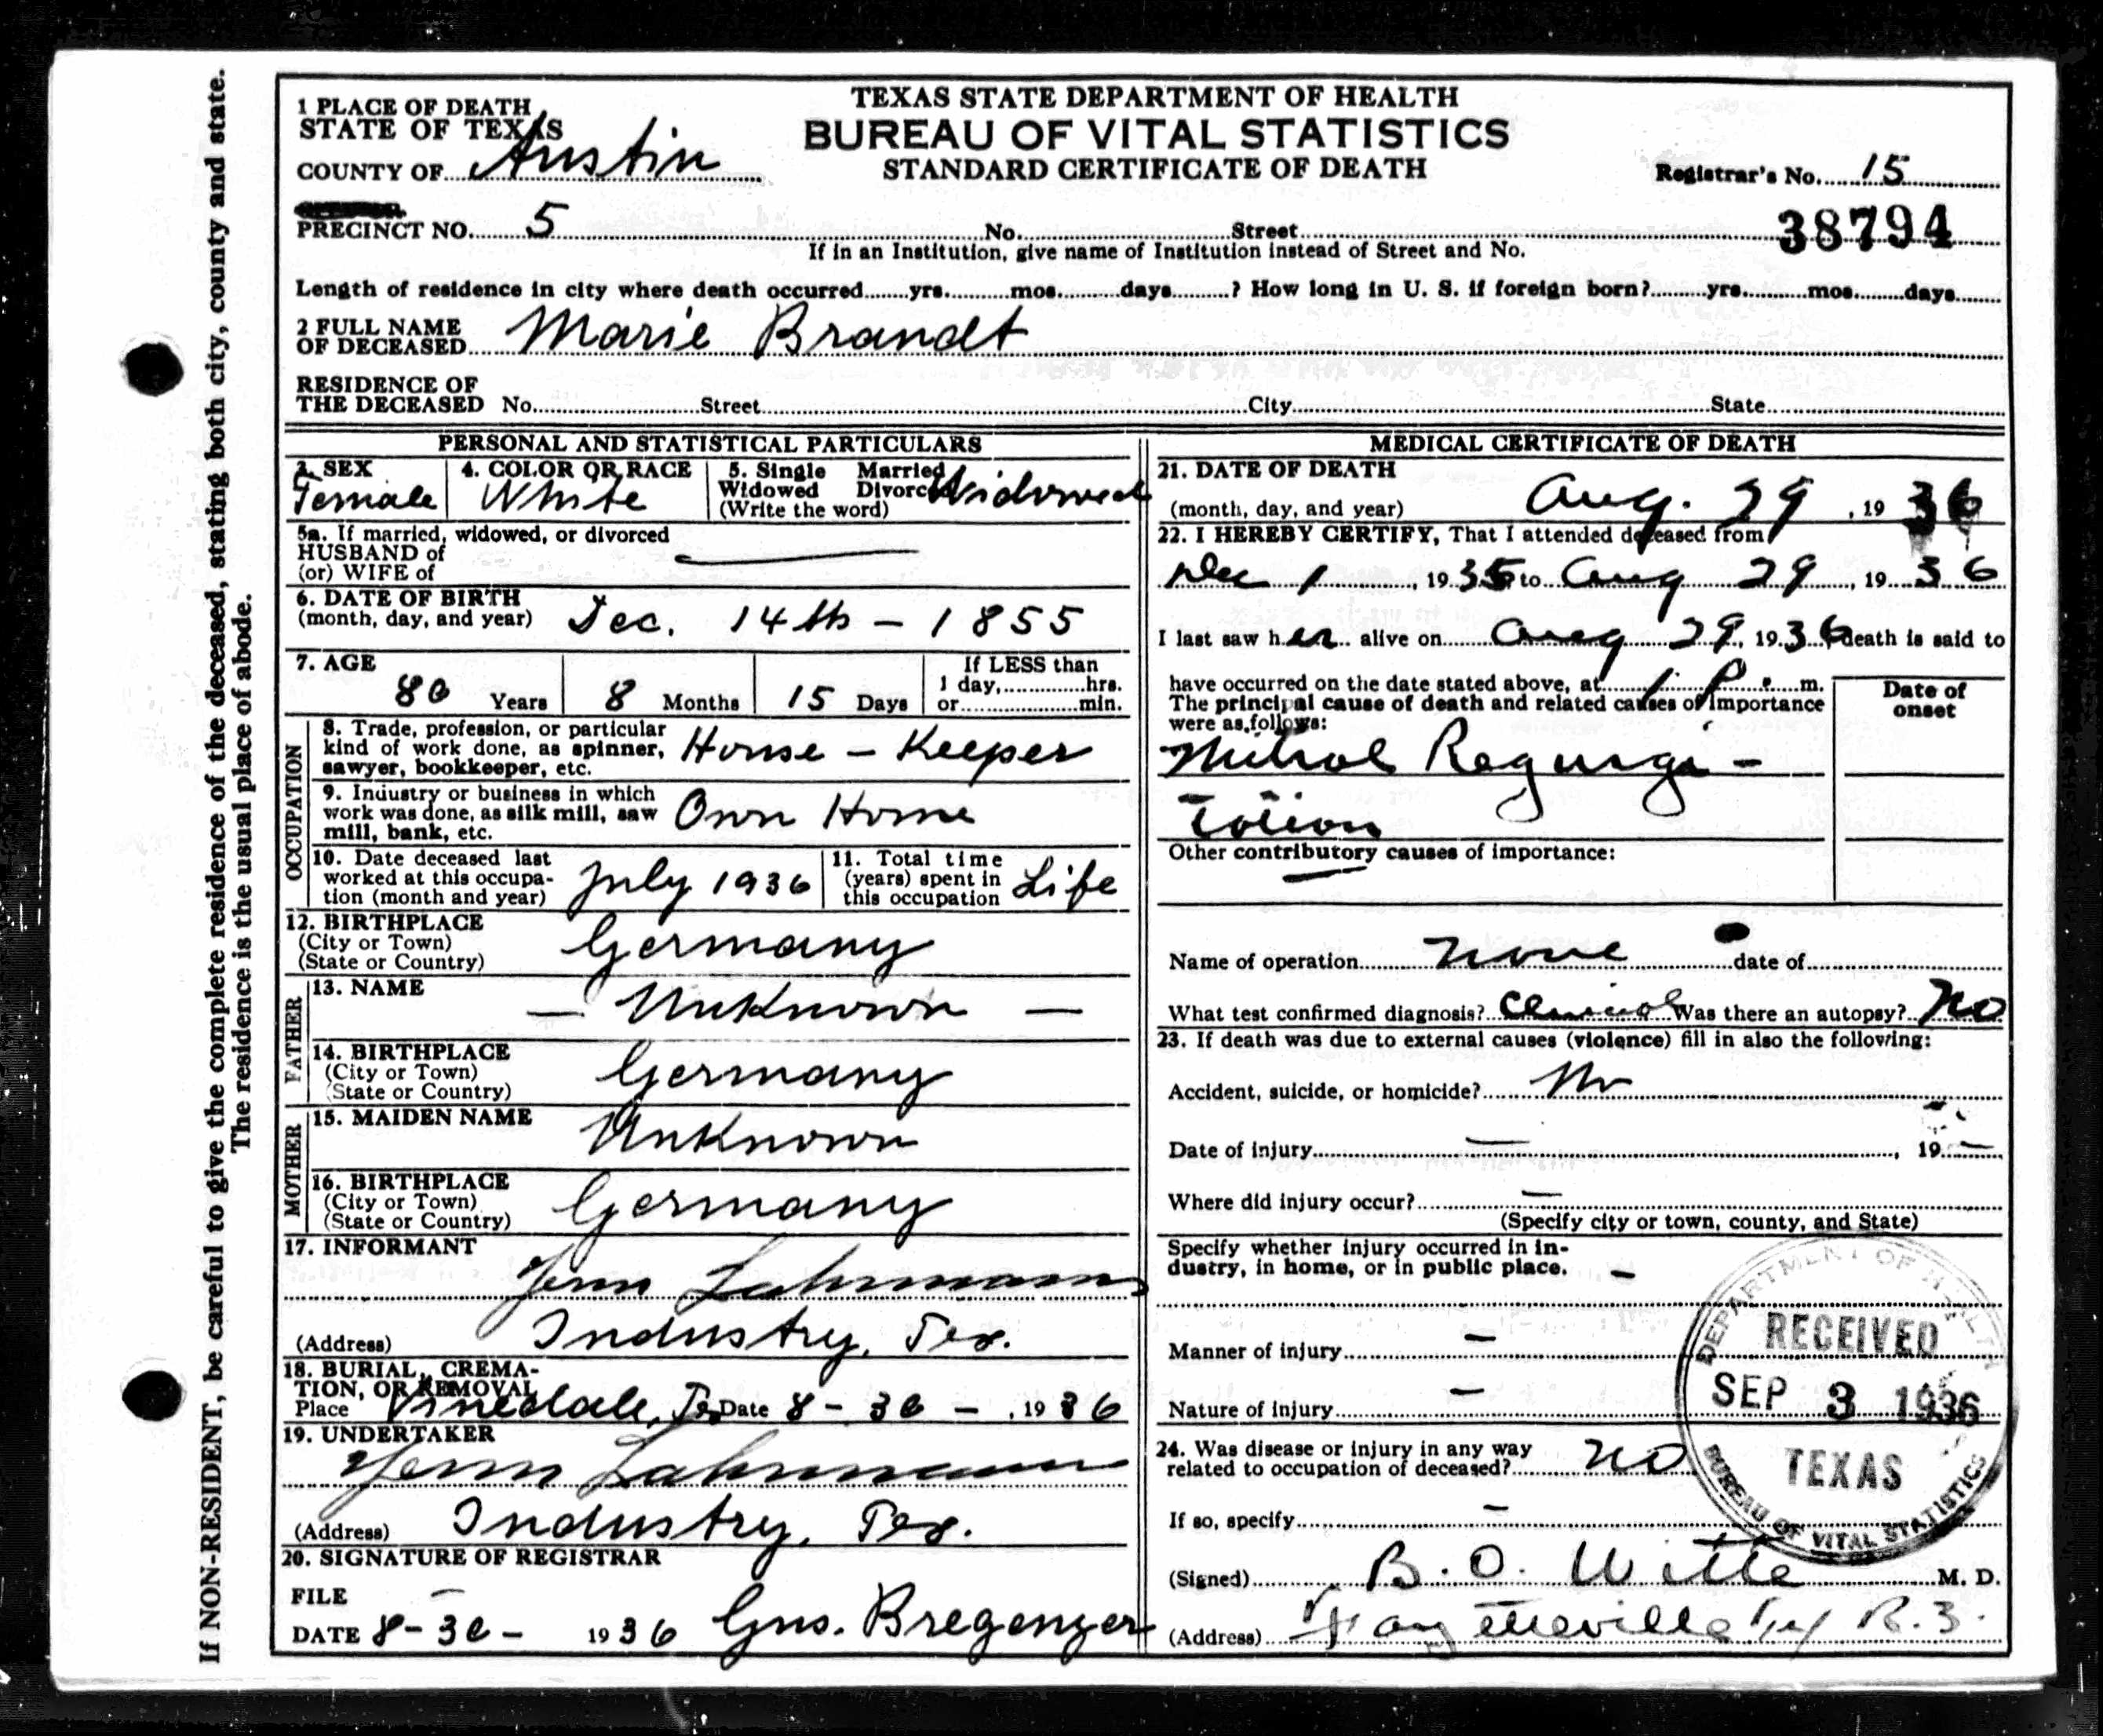 If NON-RESIDENT, be careful to give the complete residence of the deceased, stating both city, county and state.
The residence is the usual place of abode.
TEXAS STATE DEPARTMENT OF HEALTH
BUREAU OF VITAL STATISTICS
STANDARD CERTIFICATE OF DEATH
1 PLACE OF DEATH
STATE OF TEXAS
COUNTY OF Austin
Registrar's No. 15
PRECINCT NO. 5 No. Street 38794
If in an Institution, give name of Institution instead of Street and No.
Length of residence in city where death occurred yrs. mos. days ? How long in U. S. if foreign born? yrs. mos. days
2 FULL NAME
OF DECEASED Marie Brandt
RESIDENCE OF
THE DECEASED No. Street City State
PERSONAL AND STATISTICAL PARTICULARS
3. SEX
Female
4. COLOR OR RACE
White
5. Single Married
Widowed Divorced Widowed
(Write the word)
5a. If married, widowed, or divorced
HUSBAND of
(or) WIFE of
6. DATE OF BIRTH
(month, day, and year) Dec. 14th - 1855
7. AGE
80 Years 8 Months 15 Days
If LESS than
1 day, hrs.
or min.
OCCUPATION
8. Trade, profession, or particular
kind of work done, as spinner, House - Keeper
sawyer, bookkeeper, etc.
9. Industry or business in which
work was done, as silk mill, saw Own Home
mill, bank, etc.
10. Date deceased last
worked at this occupa-
tion (month and year) July 1936
11. Total time
(years) spent in
this occupation Life
12. BIRTHPLACE
(City or Town)
(State or Country) Germany
FATHER
13. NAME — Unknown —
14. BIRTHPLACE
(City or Town) Germany
(State or Country)
MOTHER
15. MAIDEN NAME Unknown
16. BIRTHPLACE
(City or Town) Germany
(State or Country)
17. INFORMANT
Lahrmann
(Address) Industry, Tex.
18. BURIAL, CREMA-
TION, OR REMOVAL
Place Pinedale, Tex Date 8 - 30 - , 1936
19. UNDERTAKER
Lahrmann
(Address) Industry, Tex.
20. SIGNATURE OF REGISTRAR
FILE
DATE 8-30- 1936 Gus. Bregenzer
MEDICAL CERTIFICATE OF DEATH
21. DATE OF DEATH
(month, day, and year) Aug. 29 , 19 36
22. I HEREBY CERTIFY, That I attended deceased from
Dec 1 , 1935 to Aug 29 , 19 36
I last saw her alive on Aug 29, 1936 death is said to
have occurred on the date stated above, at 1 P. m.
The principal cause of death and related causes of importance
were as follows:
Date of
onset
Mitral Regurgi-
tation
Other contributory causes of importance:
—
Name of operation none date of
What test confirmed diagnosis? Clinical Was there an autopsy? No
23. If death was due to external causes (violence) fill in also the following:
Accident, suicide, or homicide? No
Date of injury — , 19 —
Where did injury occur? —
(Specify city or town, county, and State)
Specify whether injury occurred in in-
dustry, in home, or in public place. —
Manner of injury —
Nature of injury —
24. Was disease or injury in any way
related to occupation of deceased? no
If so, specify —
(Signed) B. O. Witte M. D.
(Address) Fayetteville Tex R. 3.
DEPARTMENT OF HEALTH
RECEIVED
SEP 3 1936
TEXAS
BUREAU OF VITAL STATISTICS